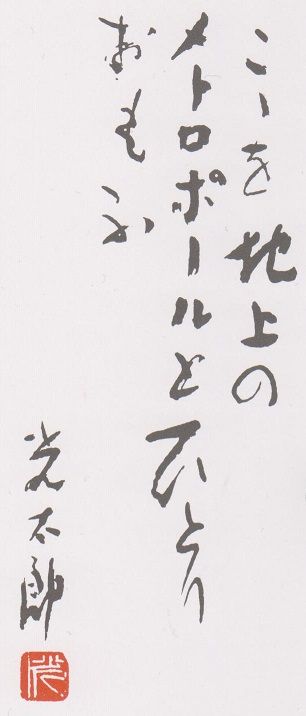 こゝを地上の
メトロポールとひとり
おもふ
光太郎
光